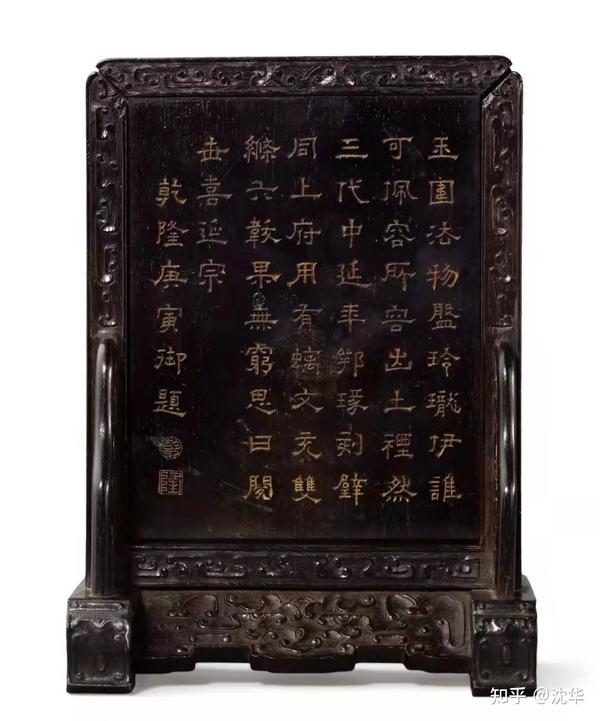 玉圍法物盤玲瓏伊誰
可佩容所出土然
三代中延年琢璧
同上府用有螭文充雙
絛六果無窮思日閱
喜延宗
乾隆庚寅御題
乾
隆
知乎 @沈华